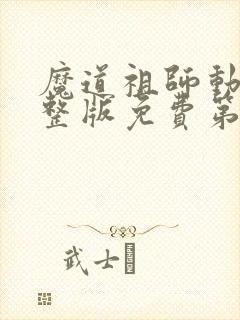 魔道祖師動
整版免費第
武士